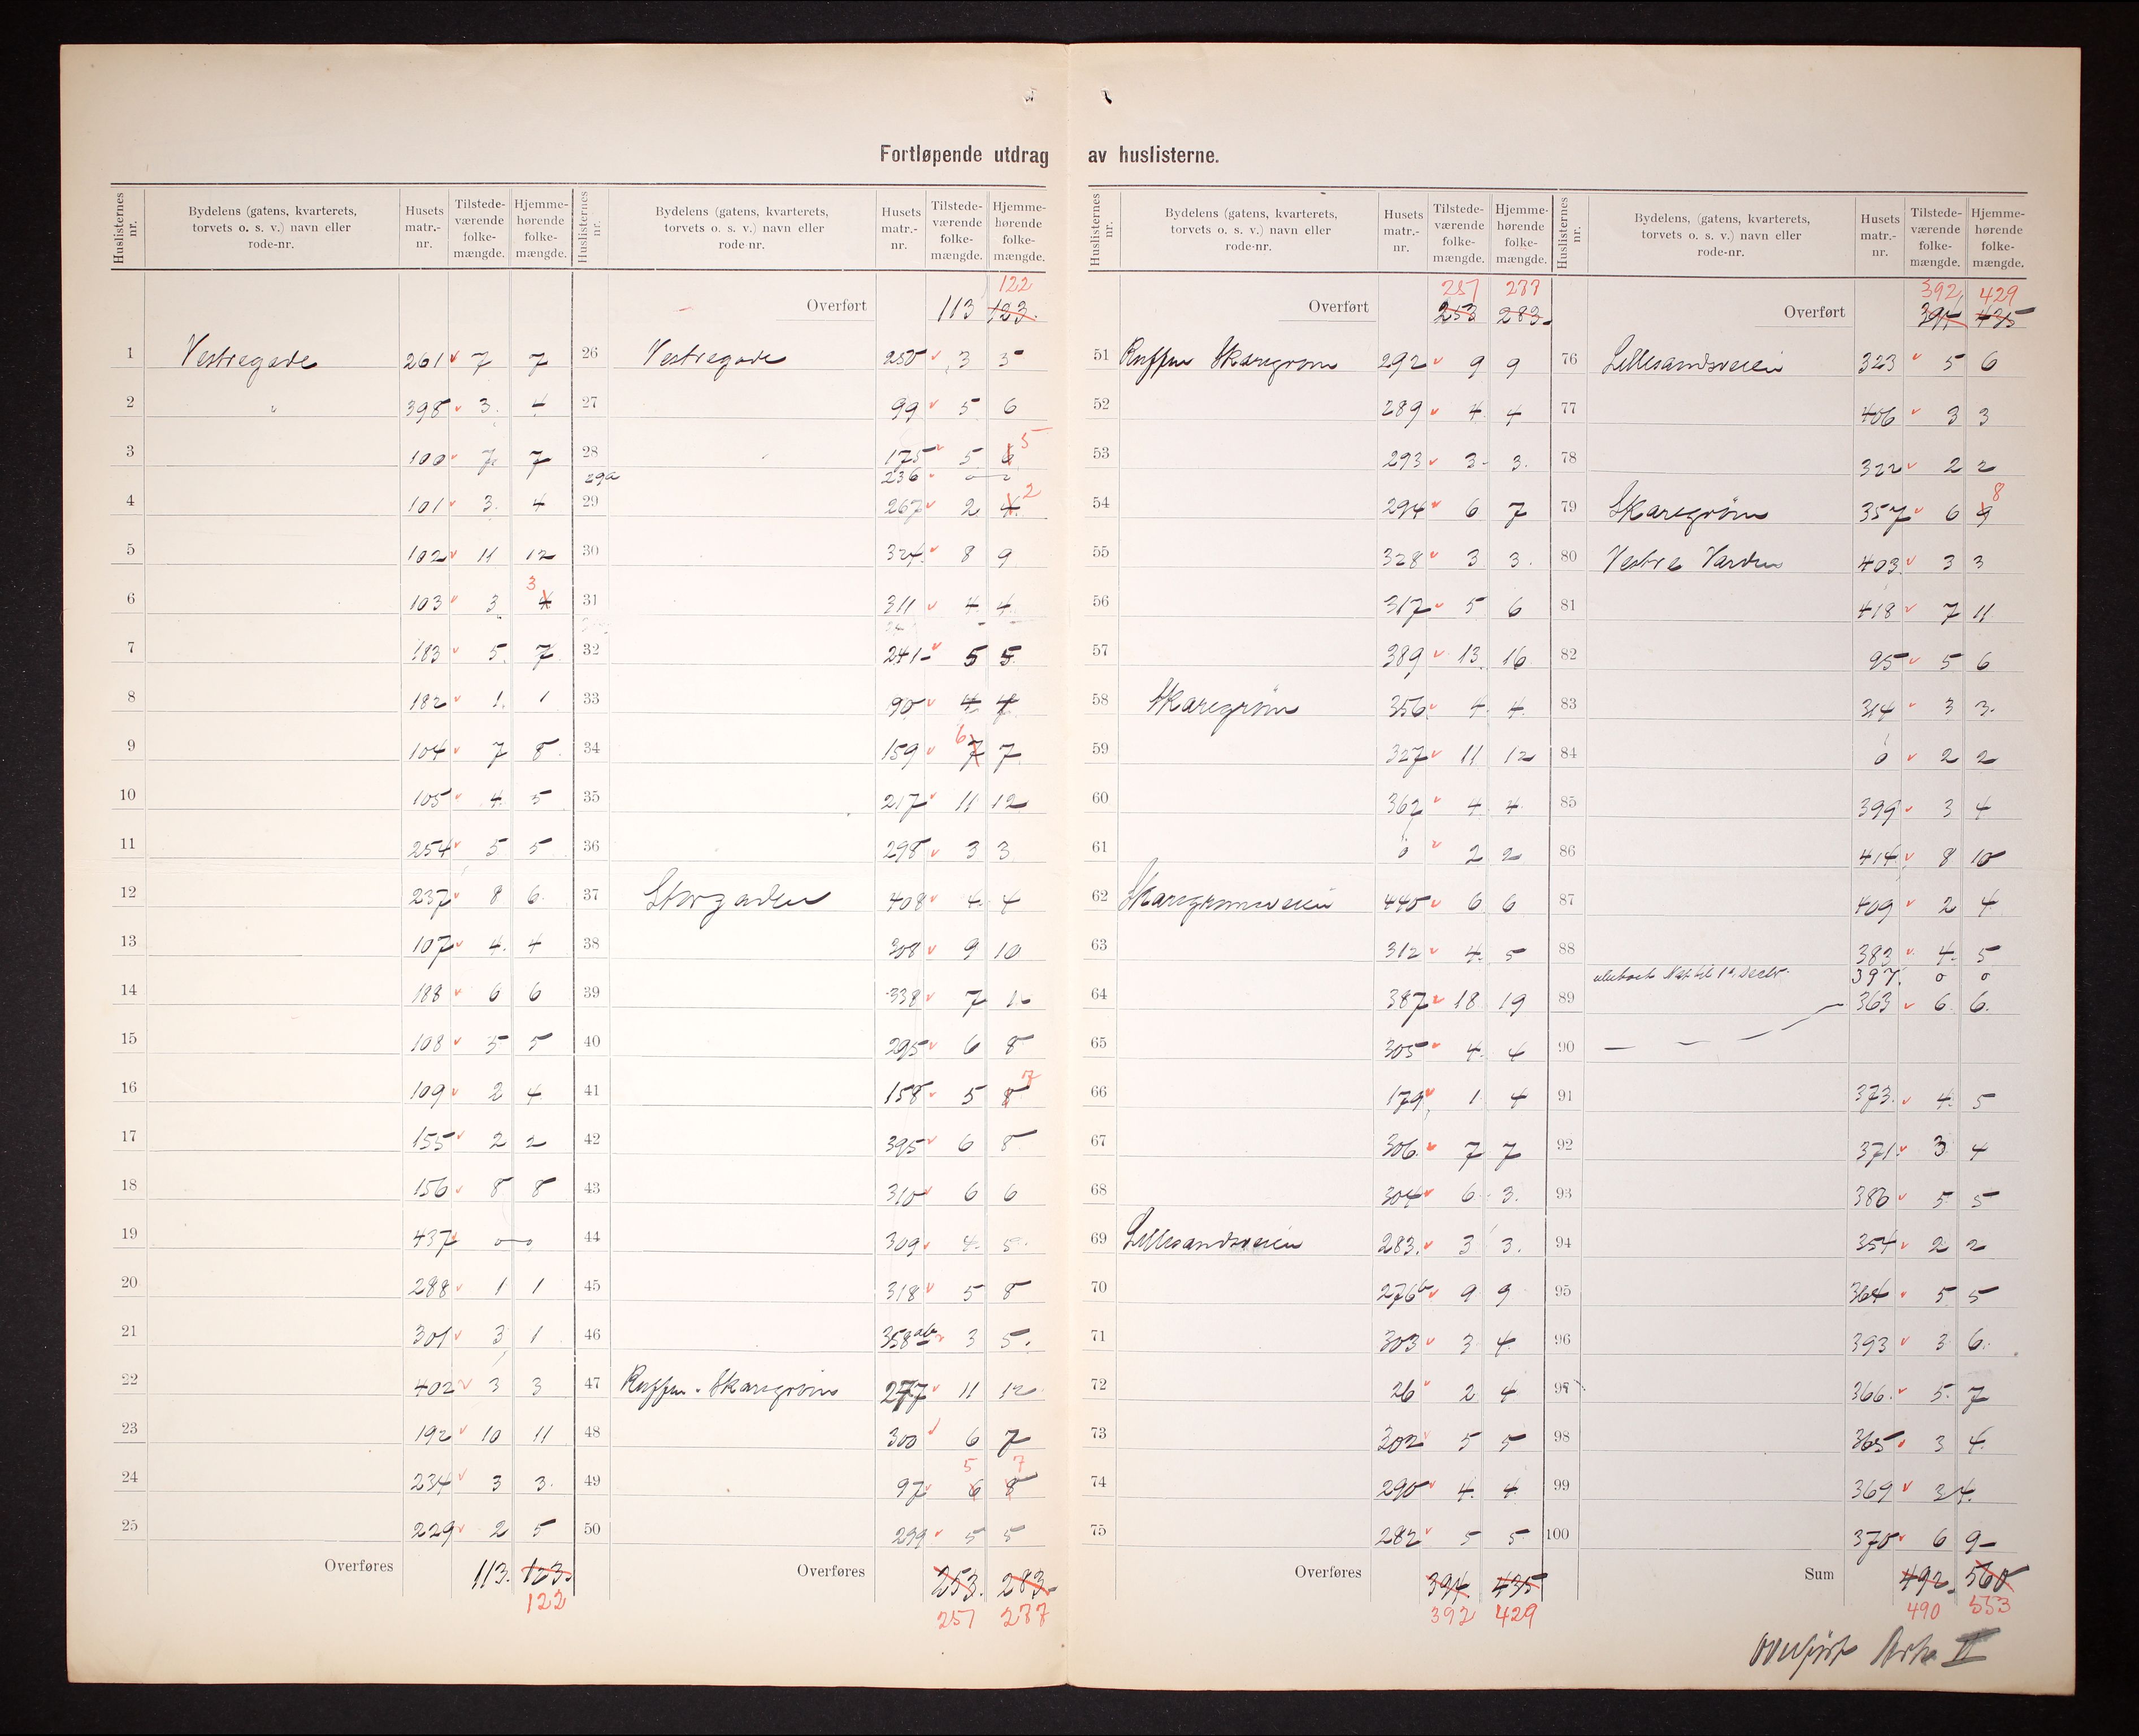 Fortløpende utdrag av huslisterne.
Huslisternes nr. Bydelens (gatens, kvarterets, torvets o. s. v.) navn eller rode-nr. Husets matr.-nr. Tilstede-værende folke-mængde. Hjemme-hørende folke-mængde.
1 Vestregade 261 7 7
2 " 398 3. 4
3 100 7. 7
4 101 3. 4
5 102 11 12
6 103 3 4 3
7 183 5. 7
8 182 1. 1
9 104 7 8
10 105 4. 5
11 254 5 5
12 237 8 6
13 107 4. 4
14 188 6 6
15 108 5 5
16 109 2 4
17 155 2 2
18 156 8 8
19 437 0 0
20 288 1 1
21 301 3 1
22 402 3 3
23 192 10 11
24 234 3 3.
25 229 2 5
Overføres 113. 123.
122
Huslisternes nr. Bydelens, (gatens, kvarterets, torvets o. s. v.) navn eller rode-nr. Husets matr.-nr. Tilstede-værende folke-mængde. Hjemme-hørende folke-mængde.
122
Overført 113 123.
26 Vestregade 250 3 3
27 99 5 6
28 175 5 6 5
29a 236 0 0
29 267 2 4. 2
30 324. 8 9
31 311 4. 4.
32 241 5 5
33 90 4 4
34 159 6 7 7
35 217 11 12
36 298 3 3
37 Storgaden 408 4. 4
38 308 9 10
39 338 7
40 295 6 8
41 158 5 8 7
42 395 6 8
43 310 6 6
44 309 4. 5.
45 318 5 8
46 358 ab 3 5.
47 Skaregrøm 277 11 12
48 300 6 7
5 7
49 97 6 8
50 299 5 5
Overføres 253. 283.
251 277
Huslisternes nr. Bydelens (gatens, kvarterets, torvets o. s. v.) navn eller rode-nr. Husets matr.-nr. Tilstede-værende folke-mængde. Hjemme-hørende folke-mængde.
251 277
Overført 253 283.
51 Skaregrøm 292 9 9
52 289 4. 4
53 293 3. 3.
54 294 6 7
55 328 3 3.
56 317 5 6
57 389 13. 16
58 Skaregrøm 356 4. 4.
59 327 11 12
60 362 4 4
61 ö 2 2
62 Skaregrømsveien 440 6 6
63 312 4. 5
64 387 18 19
65 305 4. 4
66 179 1 4
67 306. 7 7
68 304 6 3.
69 Lillesandsveien 283. 3 3.
70 276b 9 9
71 303 3 4.
72 26 2 4
73 302 5 5
74 290 4. 4.
75 282 5 5
Overføres 394. 435
392 429
Huslisternes nr. Bydelens, (gatens, kvarterets, torvets o. s. v.) navn eller rode-nr. Husets matr.-nr. Tilstede-værende folke-mængde. Hjemme-hørende folke-mængde.
392 429
Overført 394 435
76 Lillesandsveien 323 5 6
77 406 3 3
78 322 2 2
79 Skaregrøm 357 6 9 8
80 Vestre Varden 403 3 3
81 418 7 11
82 95 5 6
83 314 3 3.
84 ö 2 2
85 399 3 4
86 414 8 10
87 409 2 4
88 383 4. 5
397. 0 0
89 363 6 6.
90
91 373. 4. 5
92 371 3 4
93 386 5 5
94 354 2 2
95 364 5 5
96 393 3 6.
97 366. 5. 7
98 365 3 4.
99 369 3 4.
100 370 6 9
Sum 492. 560
490 553
overført Ark II